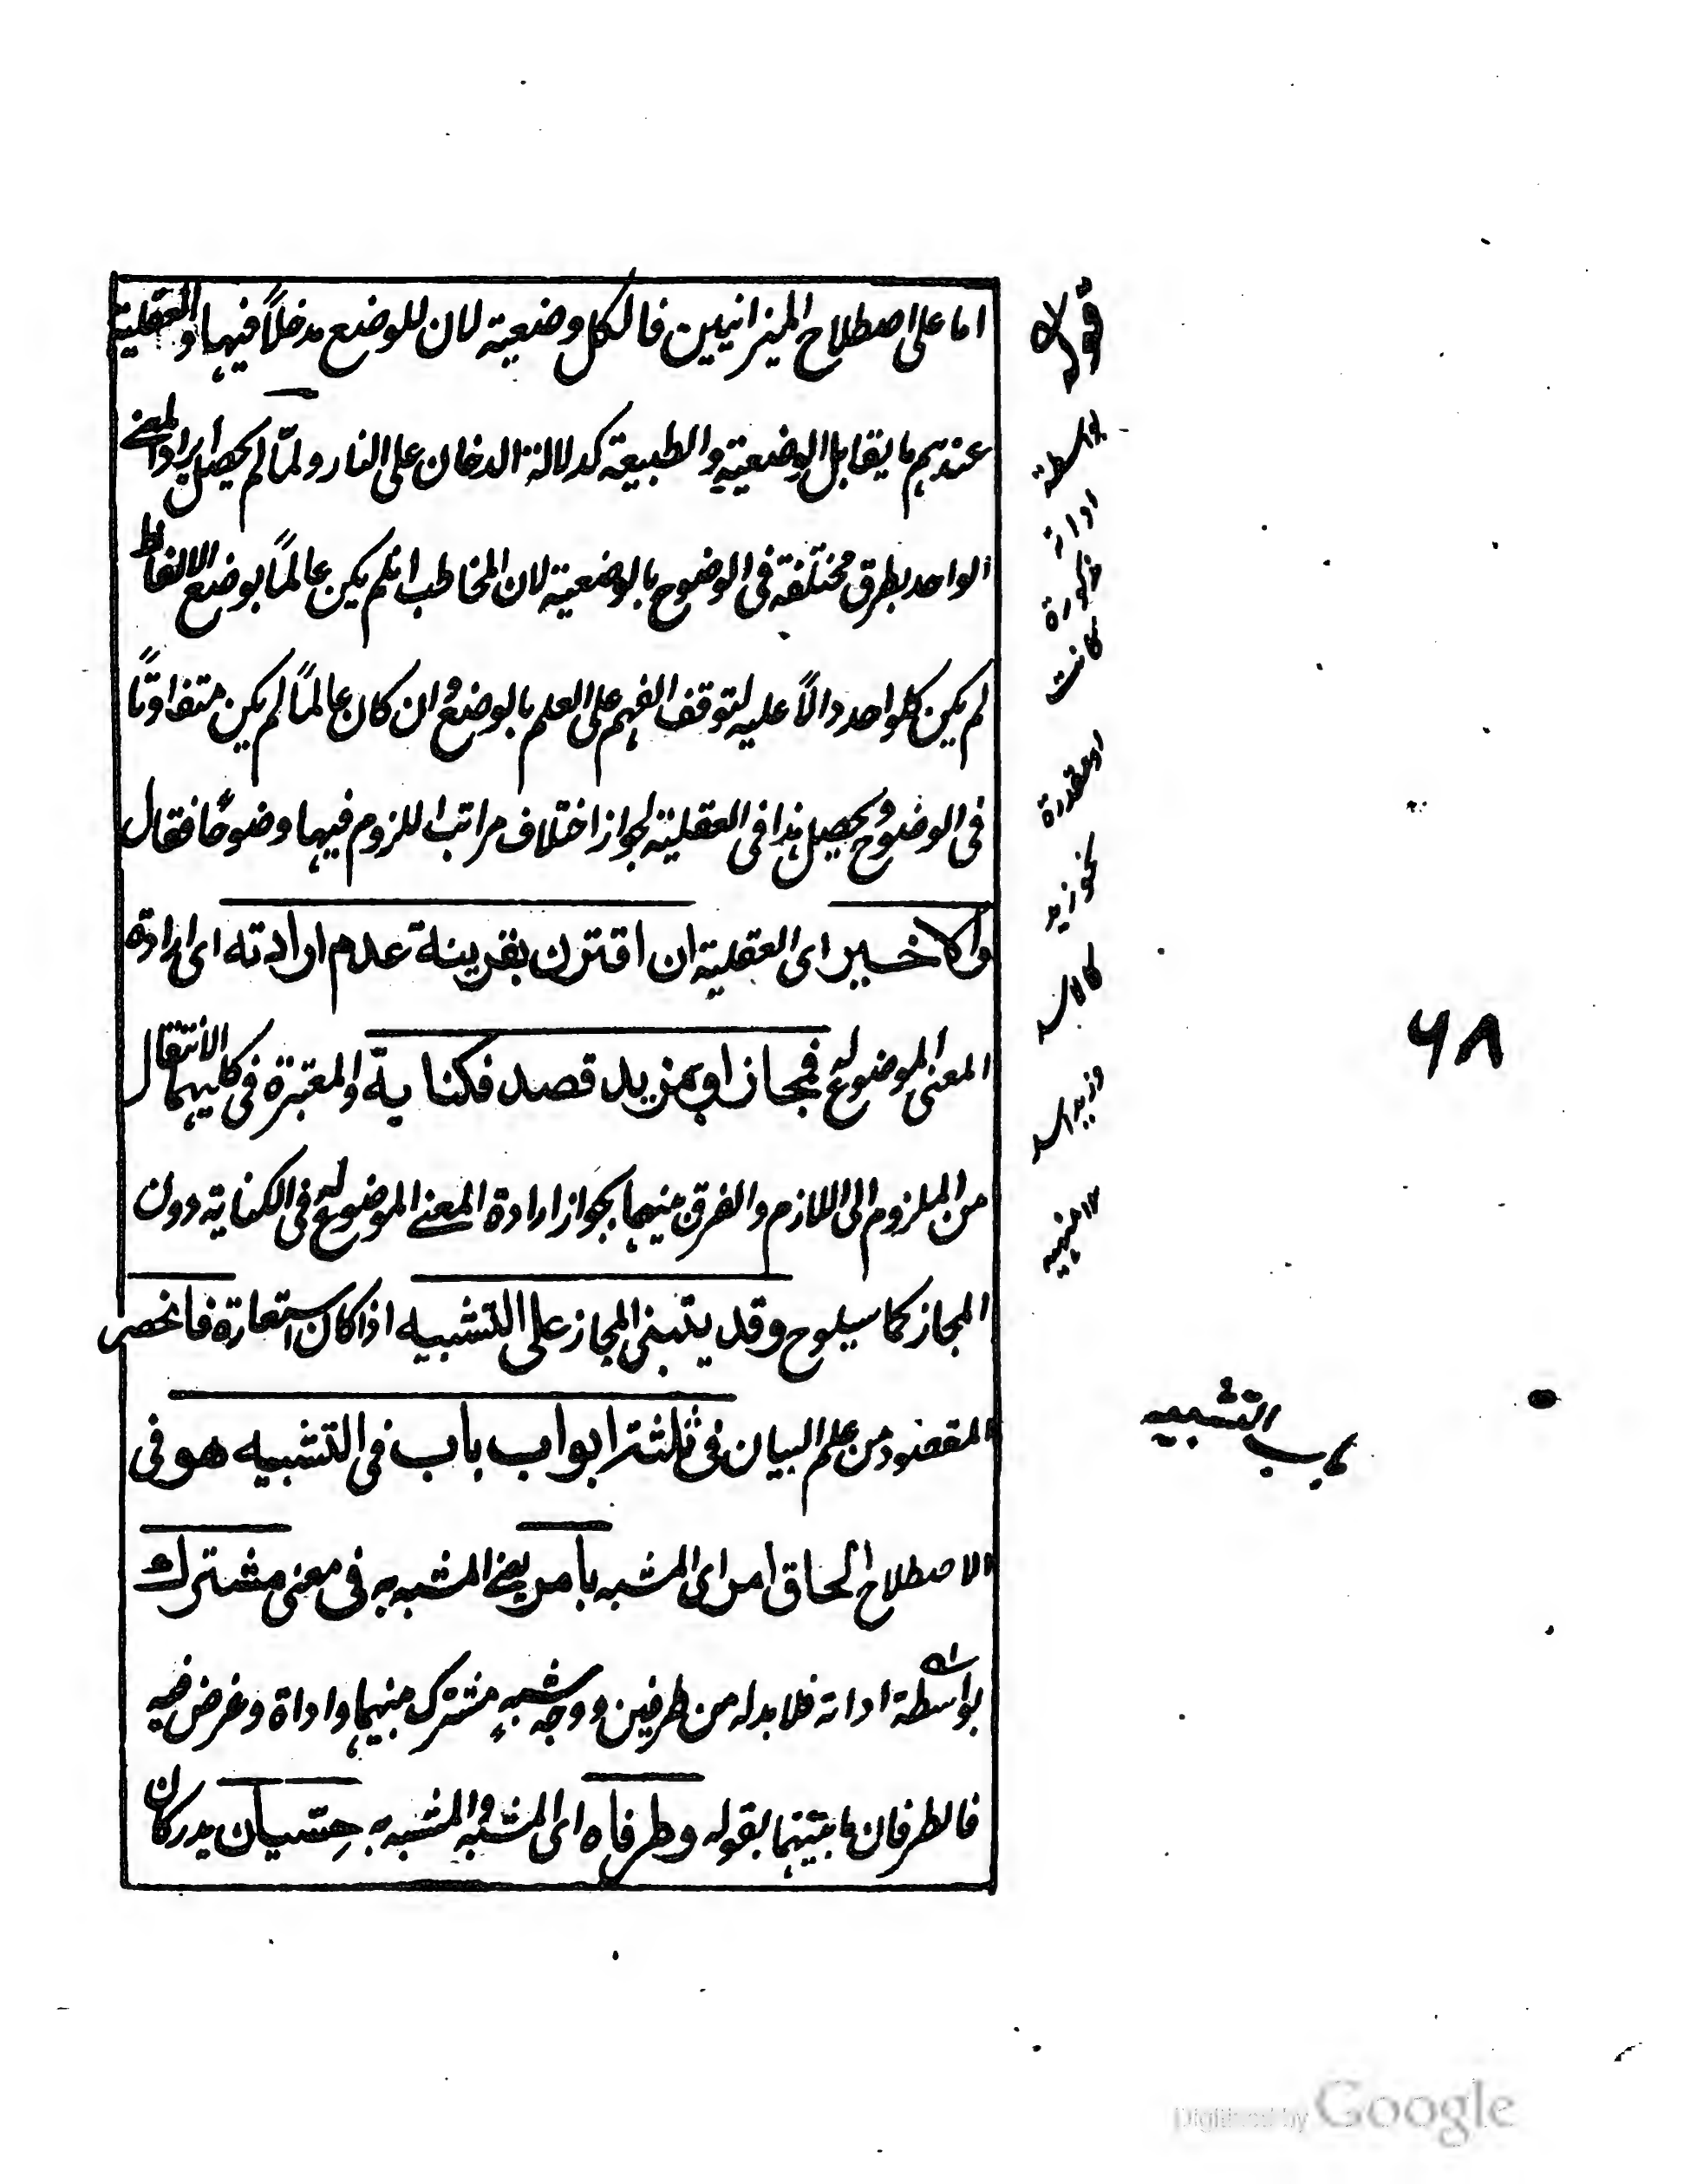 اما على اصطلاح الميزانيين فالكل وضعية لان للوضع مدخلاً فيها والعقلية
عندهم ما يقابل الوضعية والطبيعة كدلالة الدخان على النار ولمّا لم يحصل ايراد المعنى
الواحد بطرق مختلفة فى الوضوح بالوضعية لان المخاطب انلم يكن عالمًا بوضع الالفاظ
لم يكن كلواحد دالاً عليه لتوقف الفهم على العلم بالوضع وان كان عالمًا لم يكن متفاوتًا
فى الوضوح ويحصل هذا فى العقلية لجواز اختلاف مراتب اللزوم فيها وضوحًا فقال
والاخير اى العقلية ان اقترن بقرينة عدم ارادته اى ارادة
المعنى الموضوع له فمجاز او بمزيد قصد فكناية والمعتبرة فى كليهما الانتقال
من الملزوم الى اللازم والفرق بينهما بجواز ارادة المعنى الموضوع له فى الكناية دون
المجاز كما سيلوح وقد يتبنى المجاز على التشبيه اذا كان استعارة فانحصر
المقصود من علم البيان فى ثلثة ابواب باب فى التشبيه هو فى
الاصطلاح الحاق امر اى المشبه بامر يعنى المشبه به فى معنى مشترك
بواسطة اداة فلا بد له من طرفين ووجه شبهٍ مشترك بينهما واداة وغرض فيه
فالطرفان ما بيّنهما بقوله وطرفاه اى المشبه والمشبه به حِسّيان يدركان
قوله
بواسطة
اداة
مذكورة
كانت
او مقدرة
نحو زيد
كالاسد
وزيد اسد
١٢ منهيه
٦٨
باب التشبيه
Digitized by Google